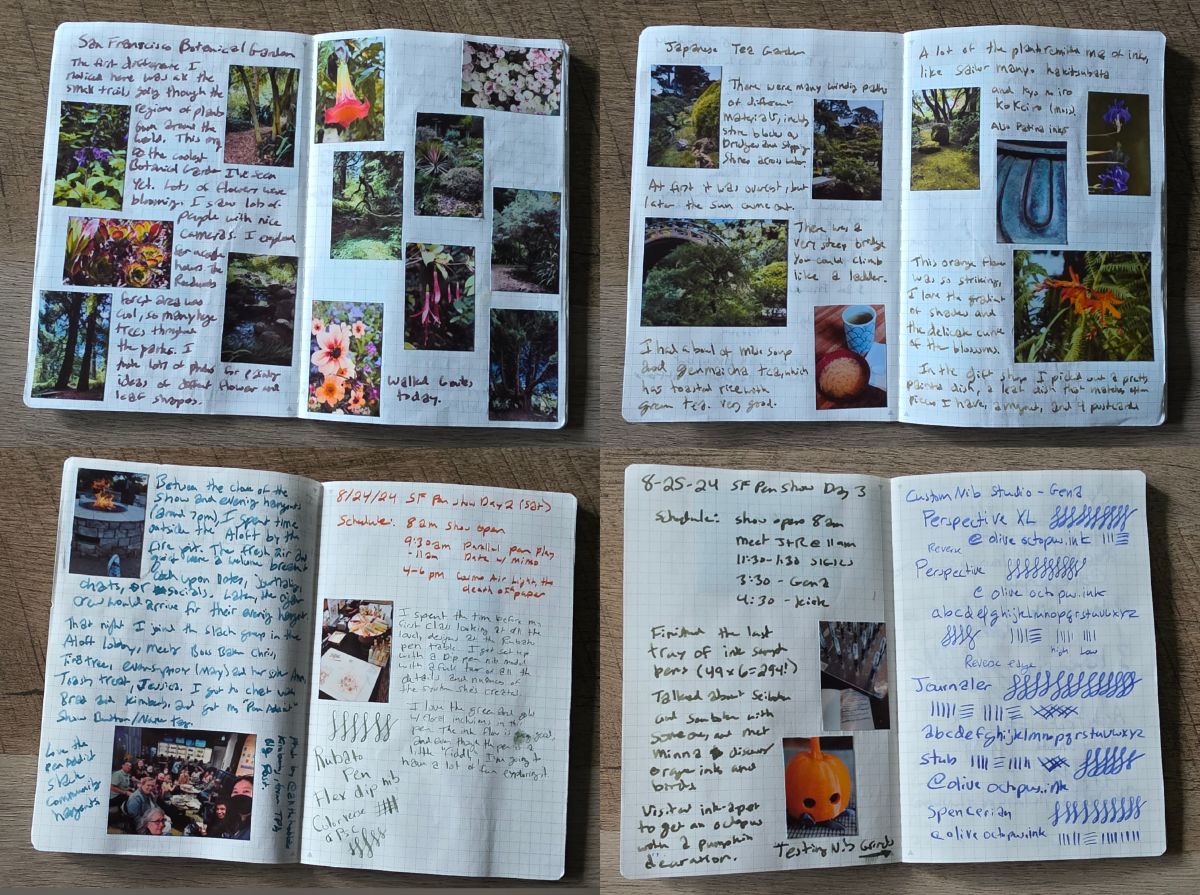 San Francisco Botanical Garden
The first distance I
noticed here was all the
small trails going through the
regions of plants
from around the
world. This may
be the coolest
Botanical Garden I've seen
yet. Lots of flowers were
blooming. I saw lots of
people with nice
cameras. I explored
for
hours the
Redwoods
forest area was
cool, so many huge
trees, throughout
the parks. I
took lots of photos for painting
ideas of different flower and
leaf shapes.
Walked 6 miles
today.
Japanese Tea Garden
There were many winding paths
of different
materials, including
stone blocks as
bridges and stepping
stones across water.
At first it was overcast, but
later the sun came out.
There was a
very steep bridge
You could climb
like a ladder.
I had a bowl of miso soup
and genmaicha tea, which
has toasted rice with
green tea. Very good.
A lot of the plants remind me of inks,
like sailor manyo kakitsubata
and kyo no iro
kokeiro (moss).
Also Patina inks
This orange flower
was so striking,
I love the gradient
of shades and
the delicate curve
of the blossoms.
In the gift shop I picked out a pretty
painted dish, a leaf dish that matches other
pieces I have, and 4 postcards
Between the close of the
show and evening hangouts
(around 7pm), I spent time
outside the Aloft by the
fire pit. The fresh air and
quiet were a welcome break to
catch up on notes, journaling,
chats, or socials. Later, the cigar
crew would arrive for their evening hangout
That night I joined the slack group in the
Aloft Lobby, meeting Boss Bam Chris,
(Mary) and her sister Ann,
Jessica. I got to chat with
Brad and Kimberly, and got my "Pen Addict"
Show Button/Name Tag.
Love the
Pen Addict
slack
community
hangouts
8/24/24 SF Pen Show Day 2 (Sat)
Schedule: 8am show open
9:30am Parallel pen play
-11am Date w/ mimo
4-6 pm Cosmo Air Light, the
death of paper
I spent the time before my
first class looking at all the
lovely designs at the Rubato
pen table. I got set up
with a Dip pen nib model
with a full tour of all the
details and nuances of
the system she's created.
I love the green and gold
inclusions in this
pen. The ink flow is so good,
and even though the pen is a
little "fiddly" I'm going to
have a lot of fun exploring it.
Rubato
Pen
Flex dip nib
Colorverse
α Psc
8-25-24 SF Pen Show Day 3
Schedule: show opens 8am
meet J+R @ 11am
11:30-1:30
3:30 - Gena
4:30 - kiok
Finished the last
tray of ink sample
pens (49 x 6 = 294!)
Talked about Seiboku
and Souboku with
someone, and met
Minna to discuss
orange ink and
birds.
Visited ink-a-pet
to get an octopus
with a pumpkin
decoration.
Testing Nib Grinds
Custom Nib Studio - Gena
Perspective XL
@olive octopus.ink
Reverse
Perspective
@olive octopus.ink
abcdefghijklmnopqrstuvwxyz
high Low
Reverse edge
Journaler
abcdefghijklmnopqrstuvwxyz
Stub
@olive octopus.ink
Spencerian
@olive octopus.ink